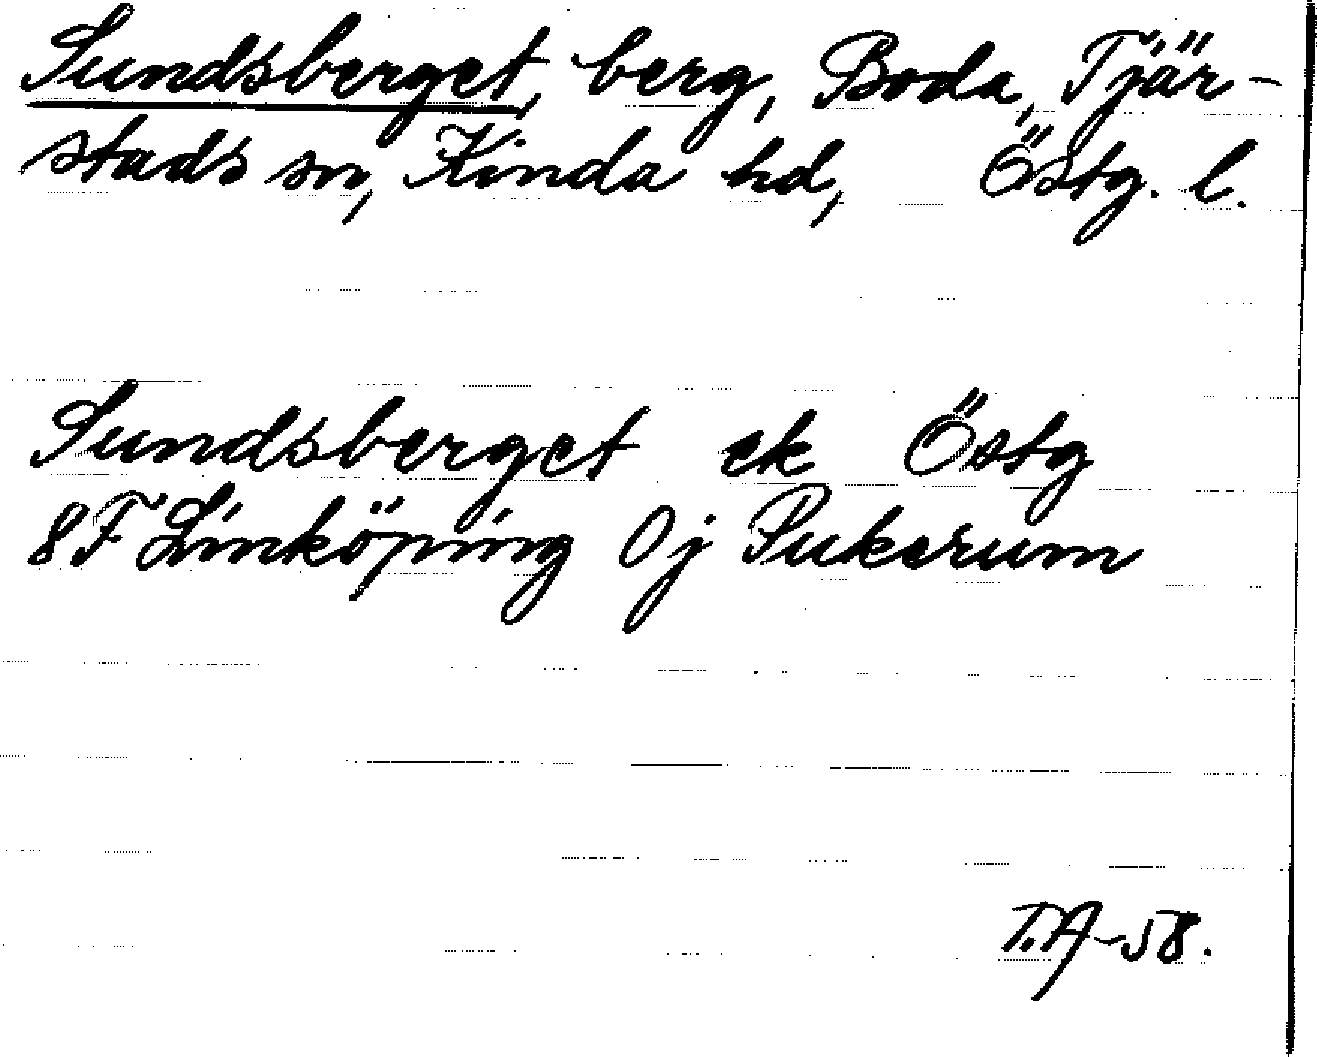 Sundsberget, berg, Boda, Tjär-
stads sn, Kinda hd, Östg. l.
Sundsberget ek Östg
8F Linköping 0j Pukerum
T.A-58.